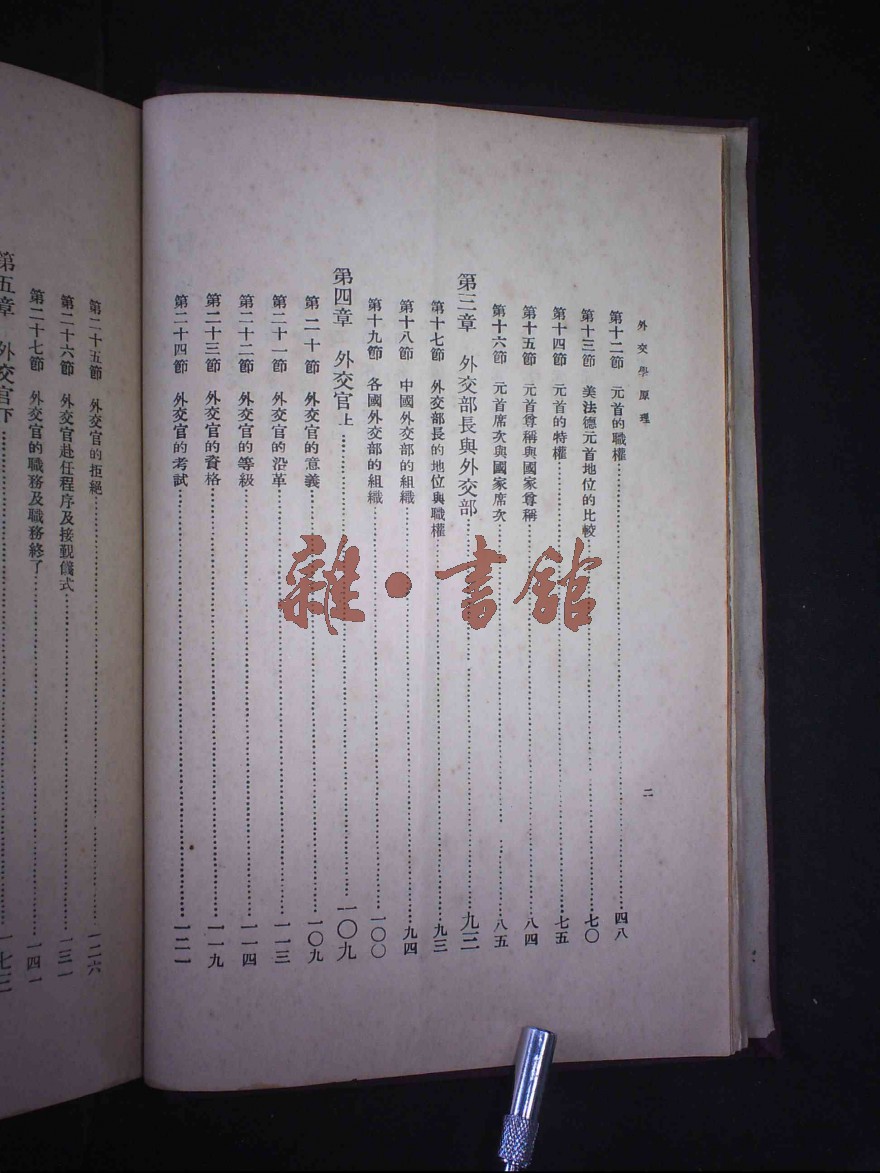 外交學原理
二
第十二節　元首的職權……四八
第十三節　美法德元首地位的比較……七〇
第十四節　元首的特權……七五
第十五節　元首尊稱與國家尊稱……八四
第十六節　元首席次與國家席次……八五
第三章　外交部長與外交部……九三
第十七節　外交部長的地位與職權……九三
第十八節　中國外交部的組織……九四
第十九節　各國外交部的組織……一〇〇
第四章　外交官上……一〇九
第二十節　外交官的意義……一〇九
第二十一節　外交官的沿革……一一三
第二十二節　外交官的等級……一一四
第二十三節　外交官的資格……一一九
第二十四節　外交官的考試……一二一
第二十五節　外交官的拒絕……一二六
第二十六節　外交官赴任程序及接覲儀式……一三一
第二十七節　外交官的職務及職務終了……一四一
第五章　外交官下……一七三
雜・書館